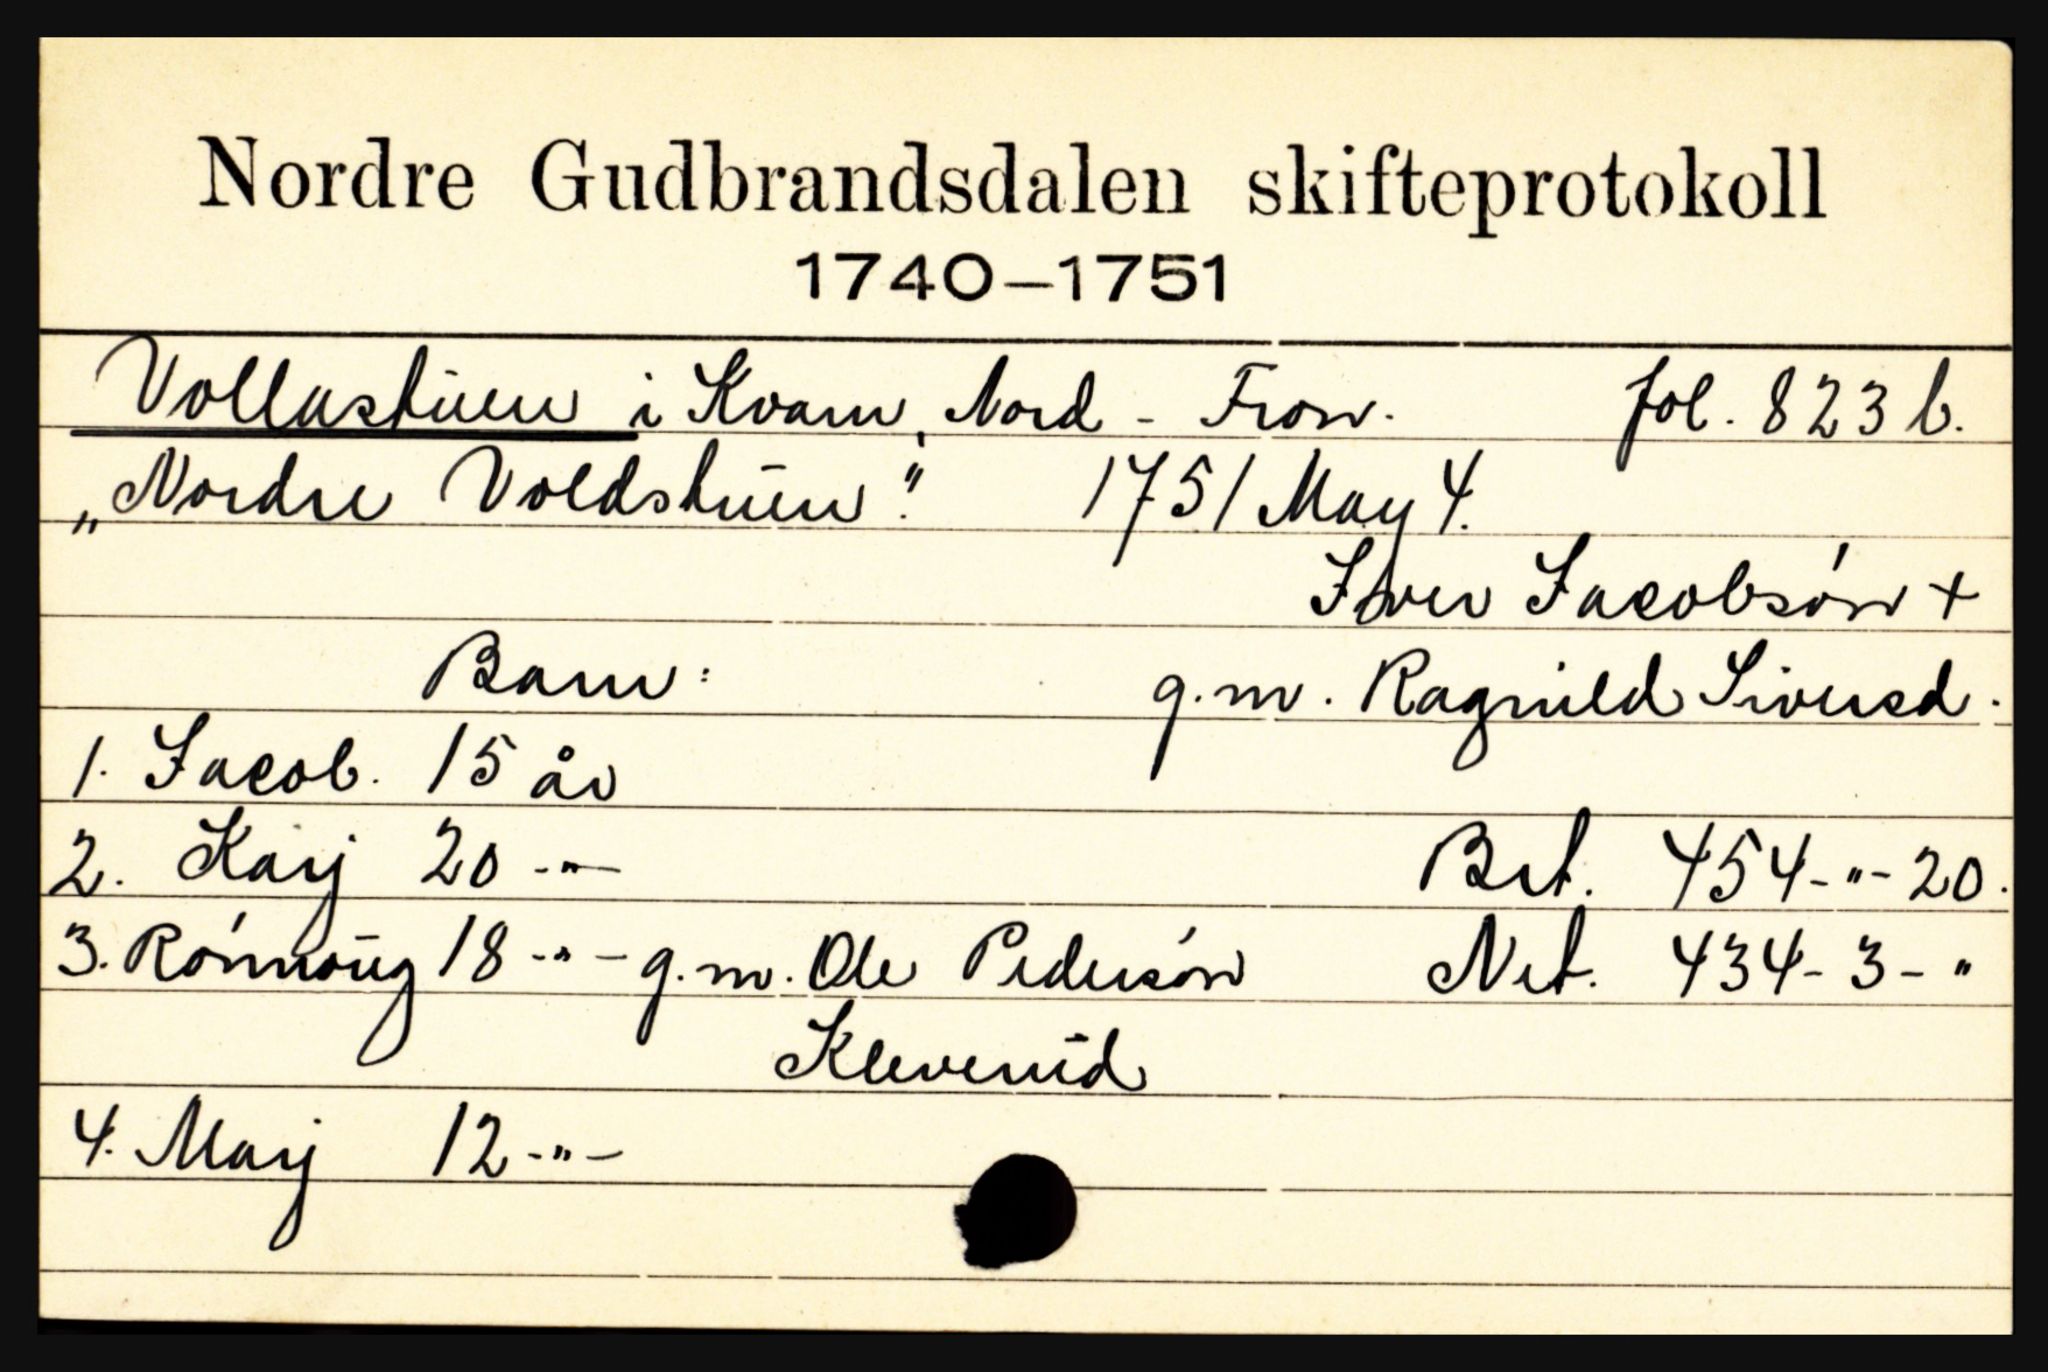 Nordre Gudbrandsdalen skifteprotokoll
1740-1751
Vollastuen i Kvam, Nord-Fron. fol. 823 b.
„Nordre Voldstuen". 1751 May 4.
Iver Jacobsón +
Barn: g.m. Ragnild Siversd.
1. Jacob. 15 år
2. Karj 20 -"- Brt. 454-"-20.
3. Rónnoug 18 -"- g.m. Ole Pedersón Net. 434-3-"
Kleverud
4. Marj 12 -"-